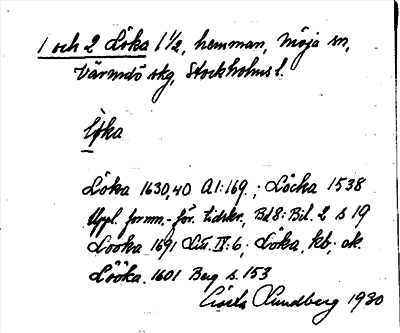 1 och 2 Löka 1 1/2, hemman, Möja sn,
Värmdö skg, Stockholms l.
Löka
Löka 1630,40 A1:169.; Löcka 1538
Uppl. fornm.-för. tidskr., Bd 8: Bil. 2 s 19
Looka 1691 Litt. IV:6; Löka, kb; ok.
Lööka 1601 Berg s. 153
Lundberg 1930